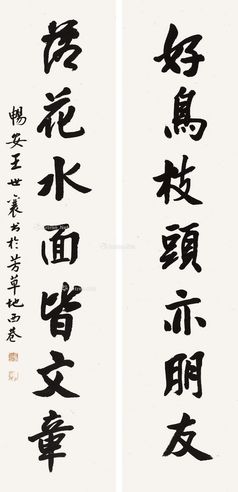 好鳥枝頭亦朋友
落花水面皆文章
暢安王世襄书於芳草地西巷